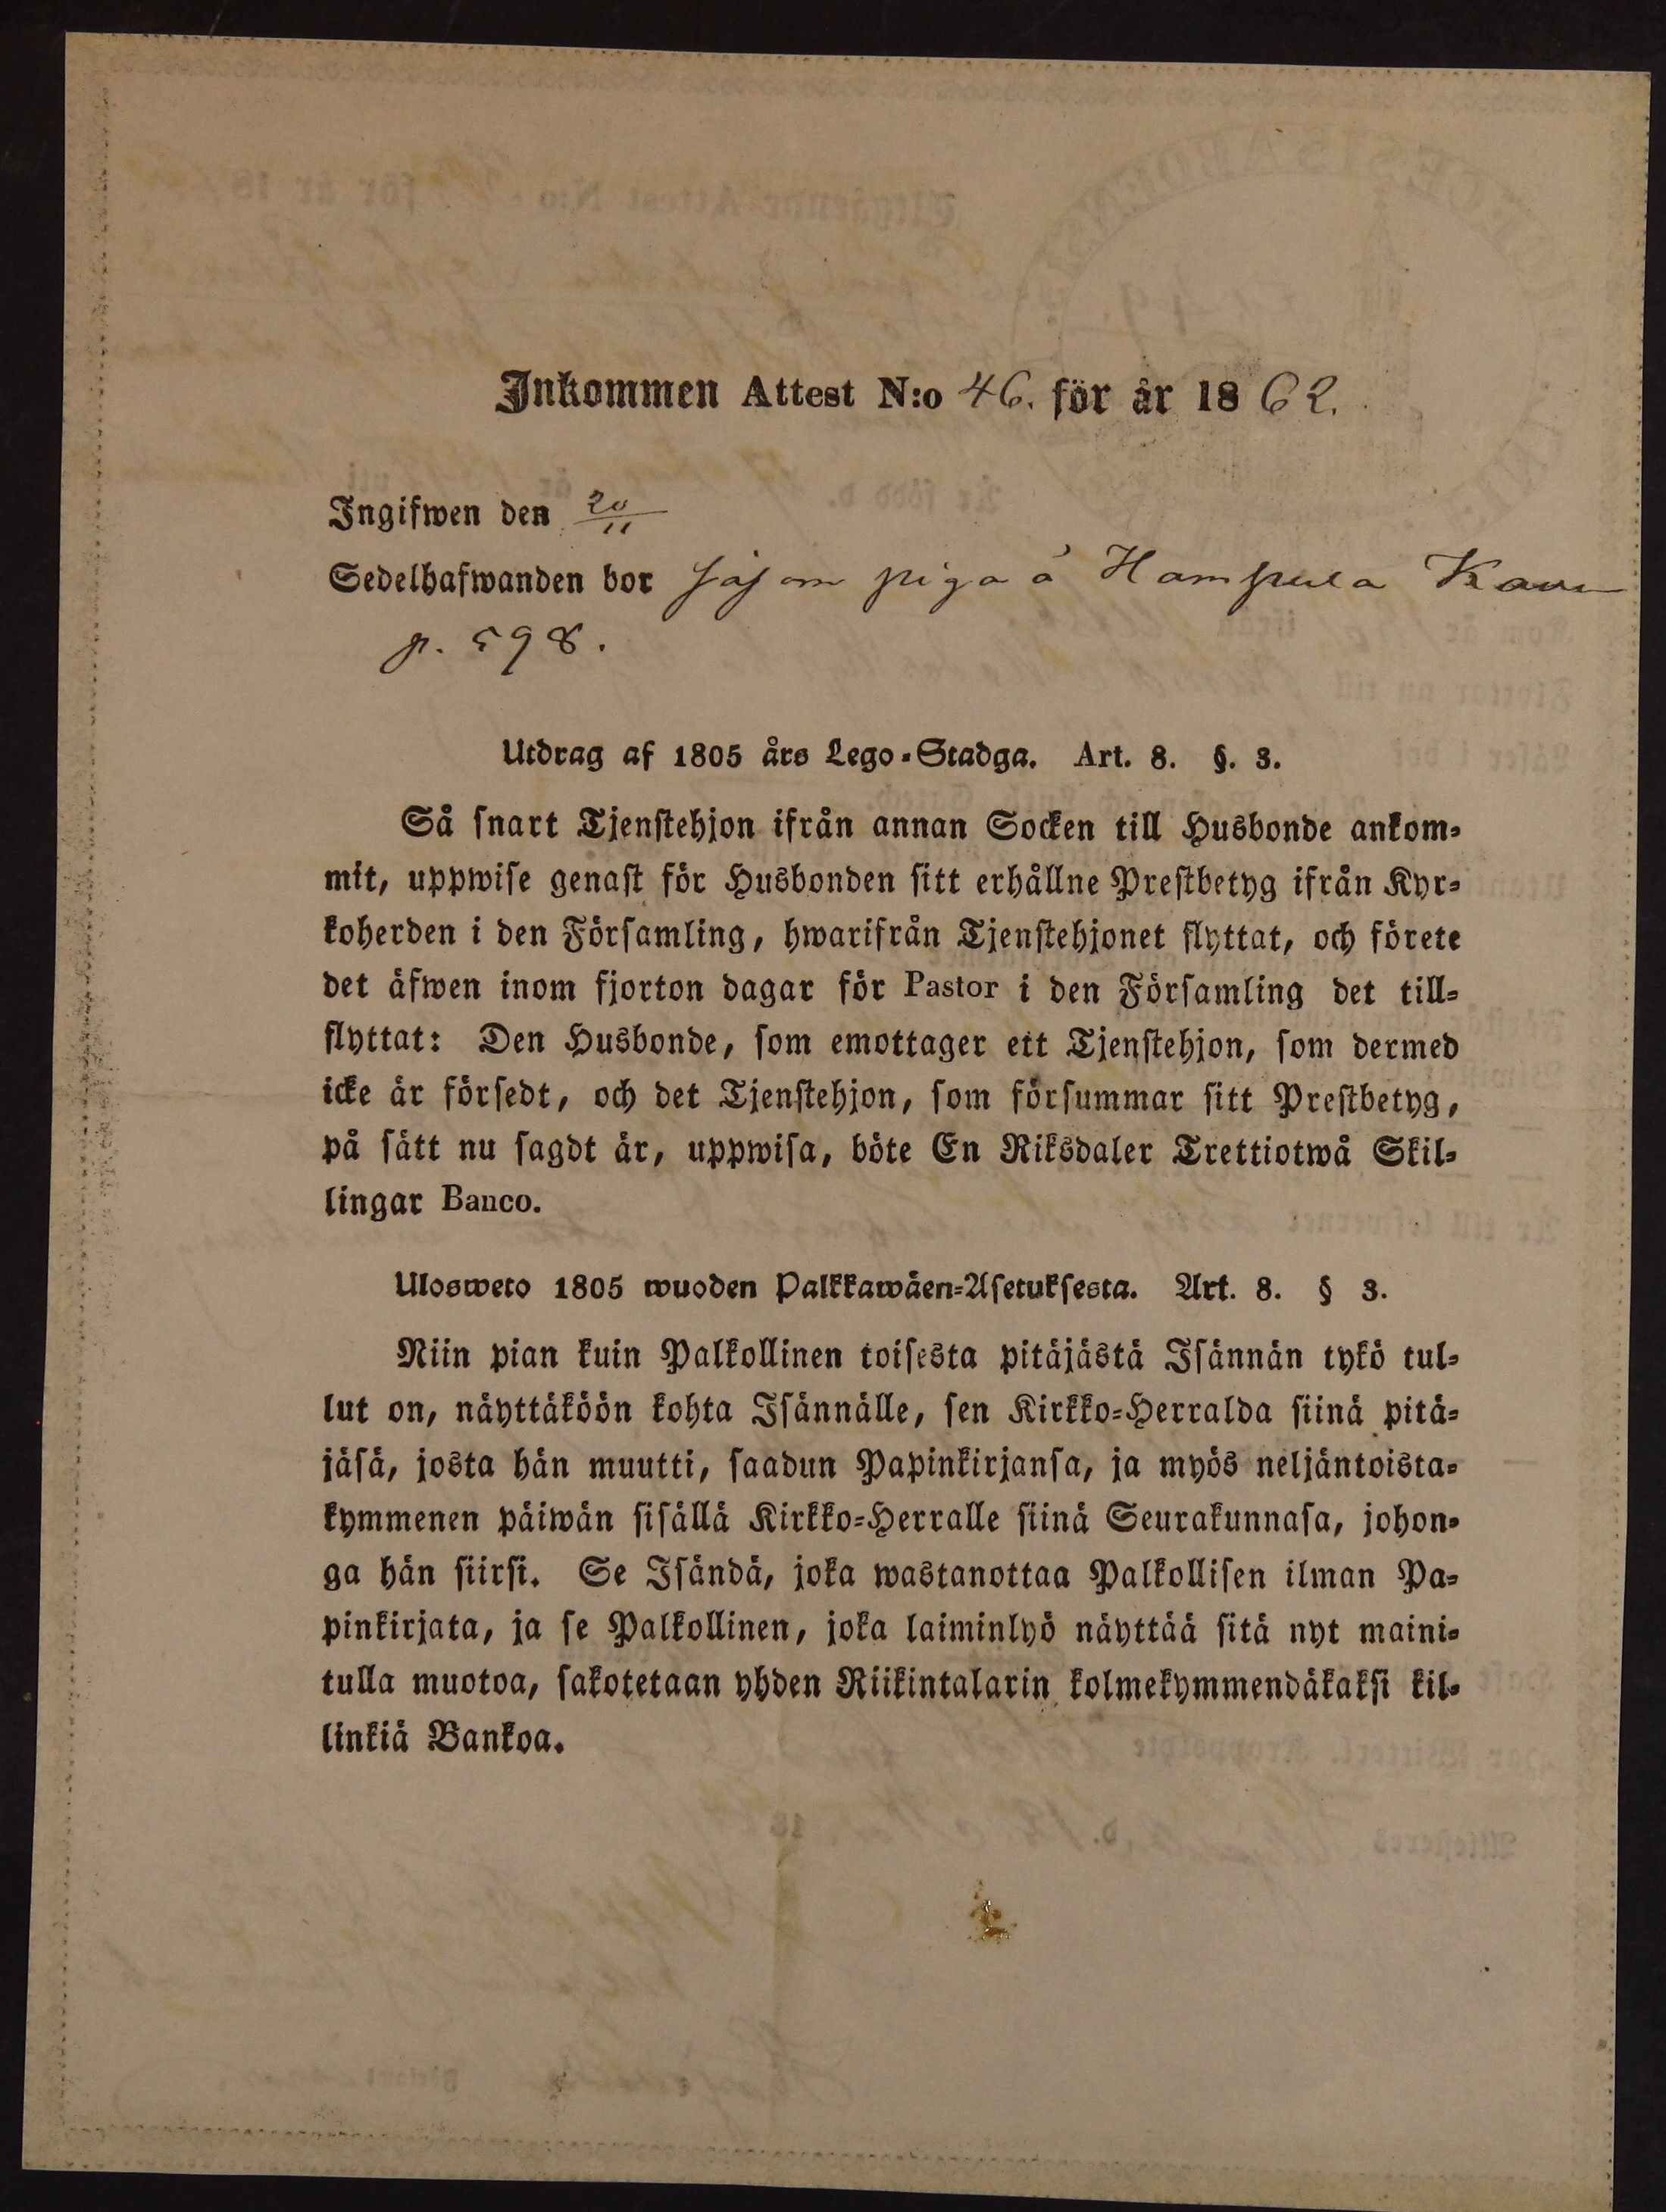 Inkommen Attest N:o 46. för år 1862.
Ingifwen den 20/11
Sedelhafwanden bor såsom piga å Hampula
p. 598.
Utdrag af 1805 års Lego-Stadga. Art. 8. §. 3.
Så snart Tjenstehjon ifrån annan Socken till Husbonde ankom-
mit, uppwise genast för Husbonden sitt erhållne Prestbetyg ifrån Kyr-
koherden i den Församling, hwarifrån Tjenstehjonet flyttat, och förete
det äfwen inom fjorton dagar för Pastor i den Församling det till-
flyttat: Den Husbonde, som emottager ett Tjenstehjon, som dermed
icke är försedt, och det Tjenstehjon, som försummar sitt Prestbetyg,
på sätt nu sagdt är, uppwisa, böte En Riksdaler Trettiotwå Skil-
lingar Banco.
Ulosweto 1805 wuoden Palkkawäen-Asetuksesta. Art. 8. § 3.
Niin pian kuin Palkollinen toisesta pitäjästä Isännän tykö tul-
lut on, näyttäköön kohta Isännälle, sen Kirkko-Herralda siinä pitä-
jäsä, josta hän muutti, saadun Papinkirjansa, ja myös neljäntoista-
kymmenen päiwän sisällä Kirkko-Herralle siinä Seurakunnasa, johon-
ga hän siirsi. Se Isändä, joka wastanottaa Palkollisen ilman Pa-
pinkirjata, ja se Palkollinen, joka laiminlyö näyttää sitä nyt maini-
tulla muotoa, sakotetaan yhden Riikintalarin kolmekymmendäkaksi kil-
linkiä Bankoa.